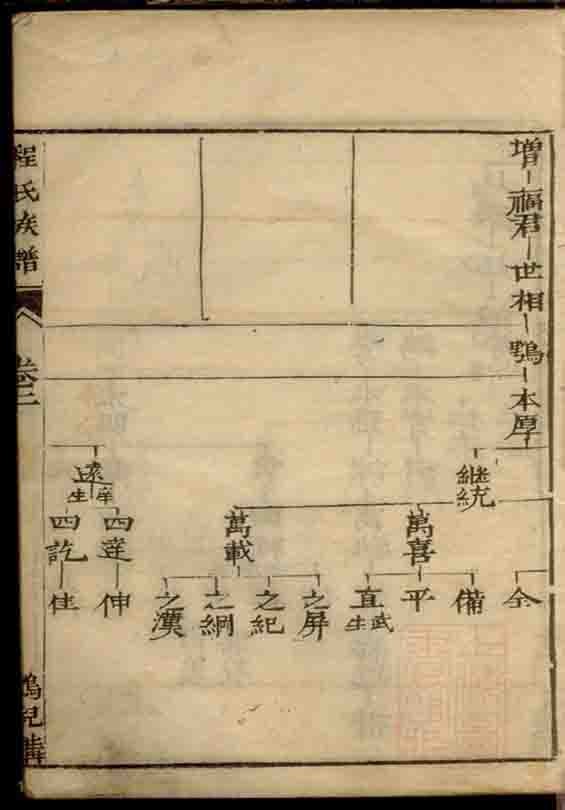 增
福君
世相
鶚
本厚
継統
萬喜
萬載
遠
庠生
四達
四訖
仝
備
平
直 武生
之屏
之紀
之綱
之漢
伸
住
程氏族譜
卷二